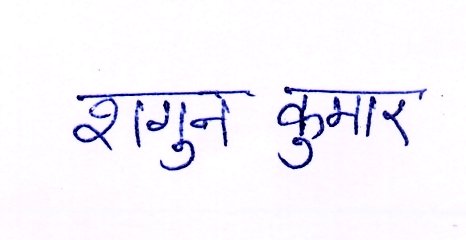 शगुन कुमार